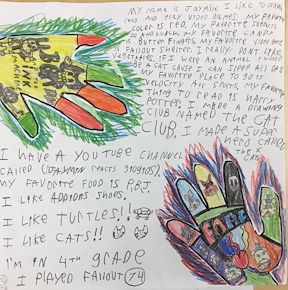 MY NAME IS JAYMIN. I LIKE TO DRAW
AND PLAY VIDEO GAMES. MY FAVORITE
COLOR IS RED. MY FAVORITE
MY FAVORITE CANDY
BUTTER FINGERS. MY FAVORITE VIDEO GAME
IS FALLOUT SHELTER. I REALLY DON'T LIKE
VEGETABLES. IF I WERE AN ANIMAL I WOULD
BE A CAT CAUSE I CAN SLEEP ALL DAY
MY FAVORITE PLACE TO GO IS
VELOCITY AIR SPORTS. MY FAVORITE
THING TO READ IS HARRY
POTTER. I MADE A DRAWING
CLUB NAMED THE CAT
CLUB. I MADE A SUPER
HERO CALLED
I HAVE A YOUTUBE CHANNEL
CALLED (JAYMIN REACTS 910910).
MY FAVORITE FOOD IS P.B.J.
I LIKE ADDIDNS SHOES.
I LIKE TURTLES!!
I LIKE CATS!!
I'M IN 4TH GRADE
I PLAYED FALLOUT 74